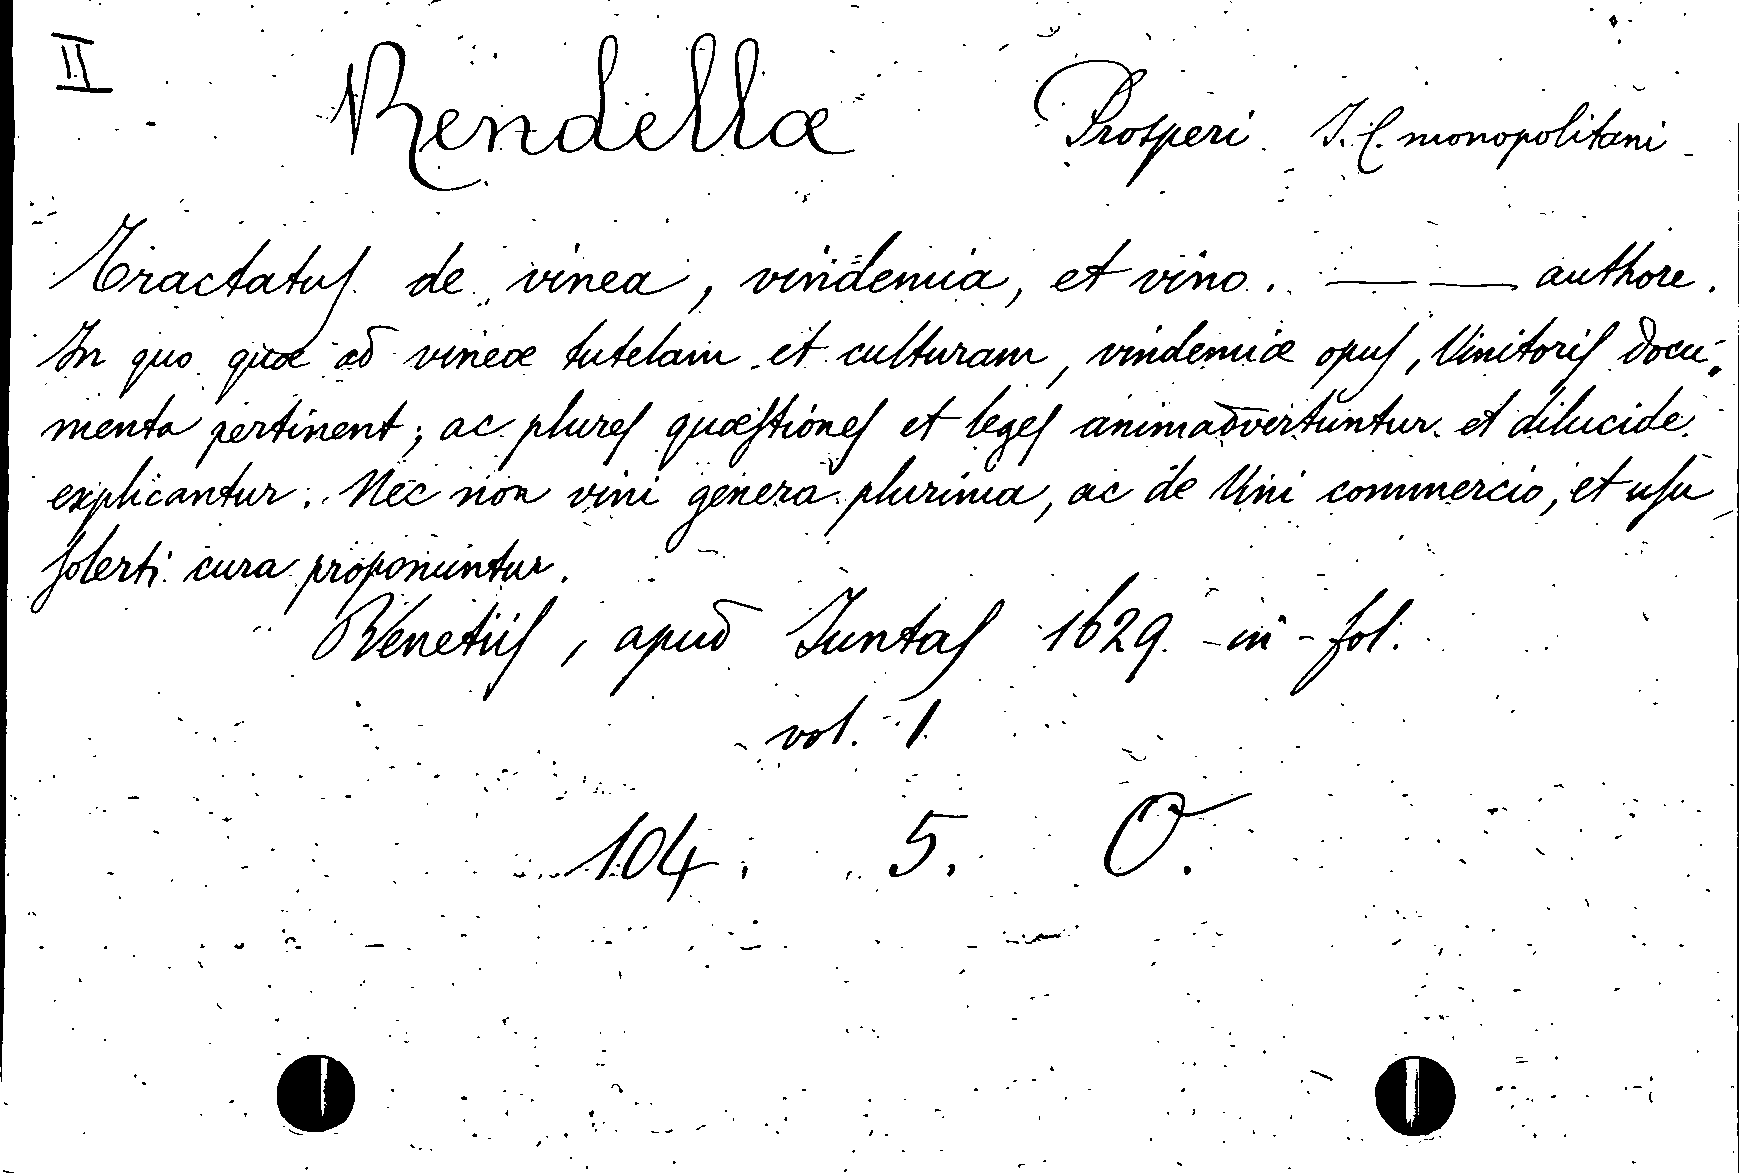 II
Rendellæ Prosperi J. C. monopolitani
Tractatus de vinea, vindemia, et vino. — — authore.
In quo quæ ad vineæ tutelam et culturam, vindemiæ opus, Vinitoris docu-
menta pertinent; ac plures quæstiones et leges animadvertuntur et dilucide
explicantur. Nec non vini genera plurima, ac de Vini commercio, et usu
solerti cura proponuntur.
Venetiis, apud Juntas 1629 - in - fol.
vol. 1
104. 5. O.